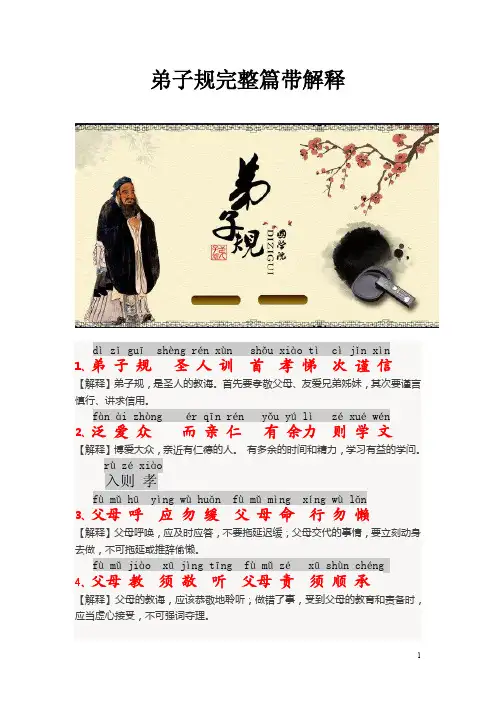 弟子规完整篇带解释
弟子规
国学院
DIZIGUI
dì zǐ guī shèng rén xùn shǒu xiào tì cì jǐn xìn
1、弟 子 规 圣 人 训 首 孝 悌 次 谨 信
【解释】弟子规，是圣人的教诲。首先要孝敬父母、友爱兄弟姊妹，其次要谨言
慎行、讲求信用。
fàn ài zhòng ér qīn rén yǒu yú lì zé xué wén
2、泛 爱 众 而 亲 仁 有 余力 则 学 文
【解释】博爱大众，亲近有仁德的人。 有多余的时间和精力，学习有益的学问。
rù zé xiào
入则 孝
fù mǔ hū yìng wù huǎn fù mǔ mìng xíng wù lǎn
3、父母 呼 应 勿 缓 父 母 命 行 勿 懒
【解释】父母呼唤，应及时应答，不要拖延迟缓；父母交代的事情，要立刻动身
去做，不可拖延或推辞偷懒。
fù mǔ jiào xū jìng tīng fù mǔ zé xū shùn chéng
4、父母 教 须 敬 听 父母 责 须 顺 承
【解释】父母的教诲，应该恭敬地聆听；做错了事，受到父母的教育和责备时，
应当虚心接受，不可强词夺理。
1